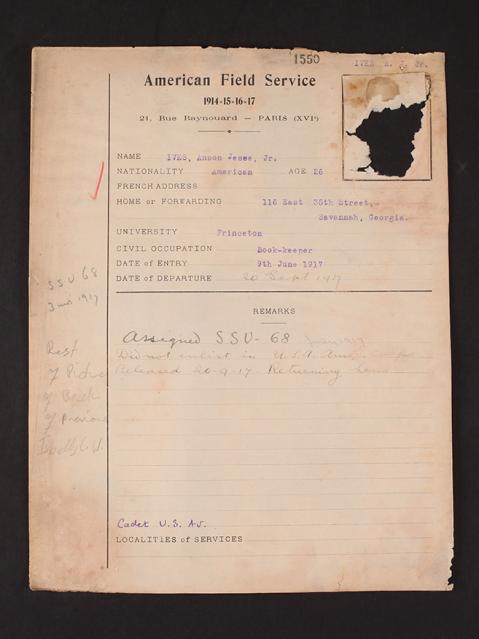 1550
IVES A. J. Jr.
American Field Service
1914-15-16-17
21, Rue Raynouard — PARIS (XVIe)
NAME IVES, Anson Jesse, Jr.
NATIONALITY American AGE 26
FRENCH ADDRESS
HOME or FORWARDING 116 East 35th Street,
Savannah, Georgia.
UNIVERSITY Princeton
CIVIL OCCUPATION Book-keeper
DATE of ENTRY 9th June 1917
DATE of DEPARTURE 20 Sept 1917
SSU 68
3 mo 1917
REMARKS
Assigned SSU-68
Did not enlist in U.S.A.
Released 20-9-17 Returning home
Rest
of
of Back
of Previous
Cadet U.S. Av.
LOCALITIES of SERVICES